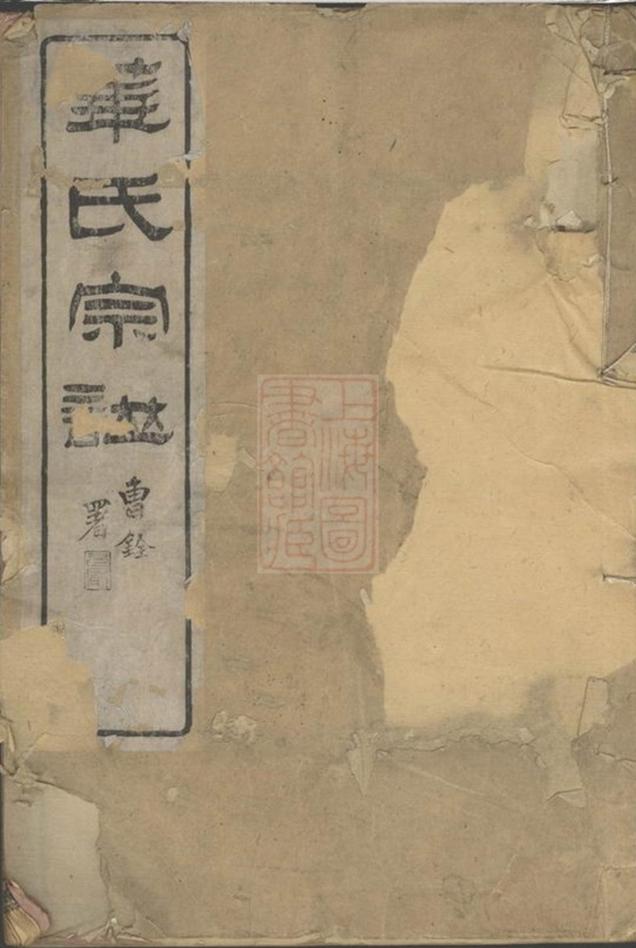 華氏宗譜
曹銓
署
上海圖
書館藏